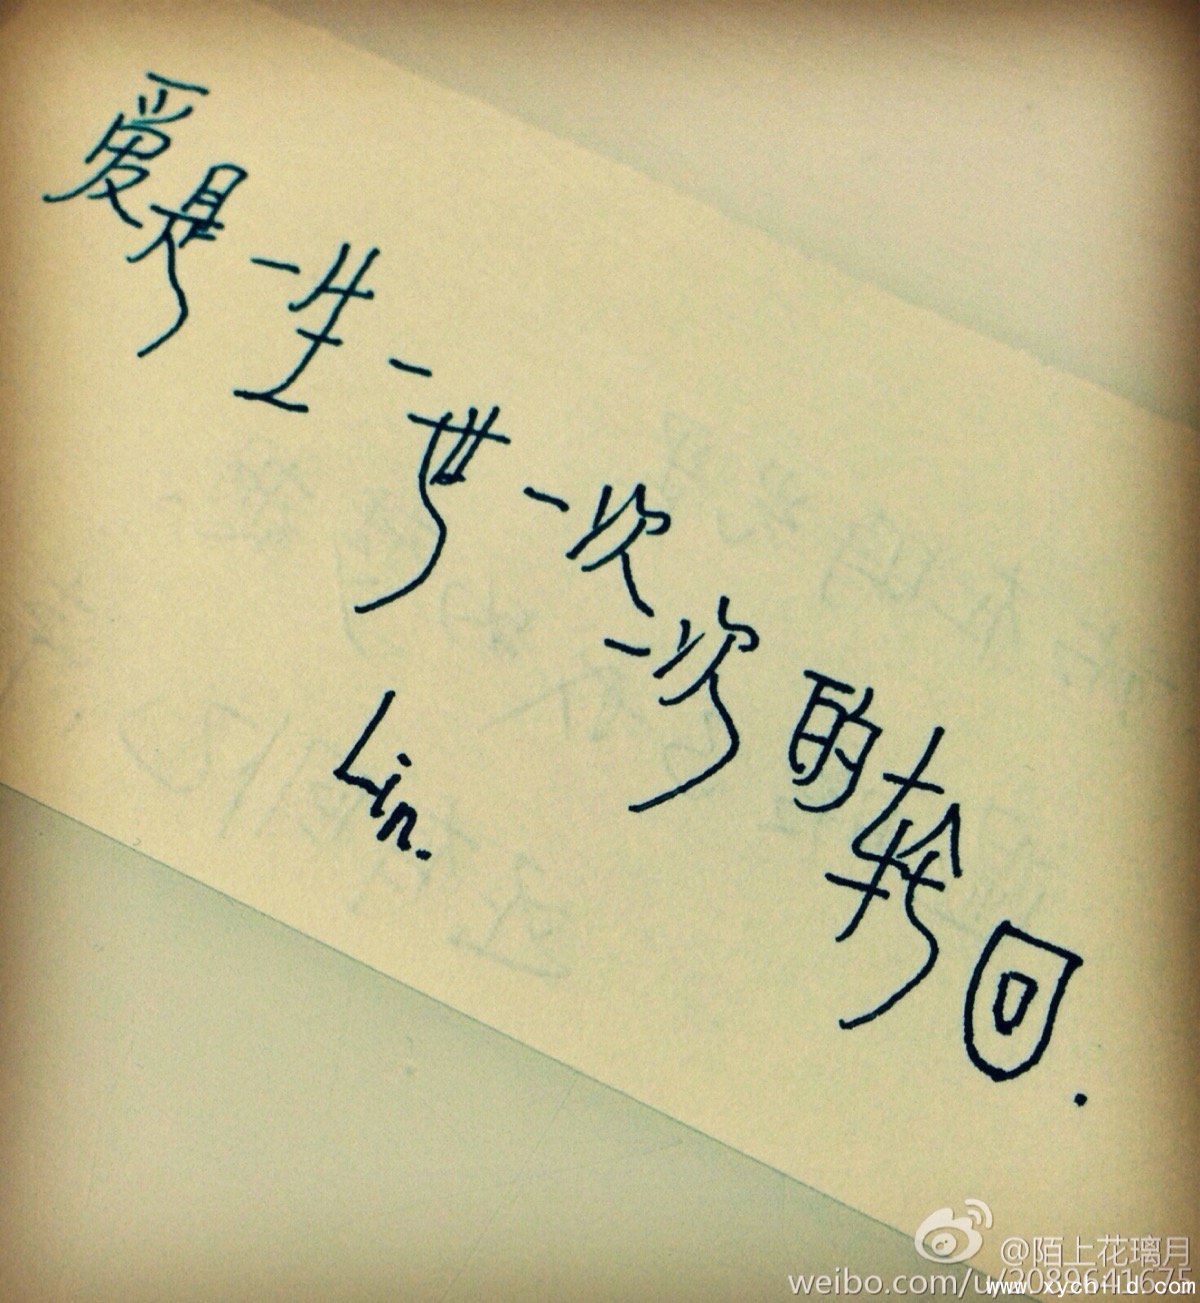 爱是一生一世一次一次的轮回.
Lin.
@陌上花璃月
weibo.com/u/2089641675
www.xychild.com